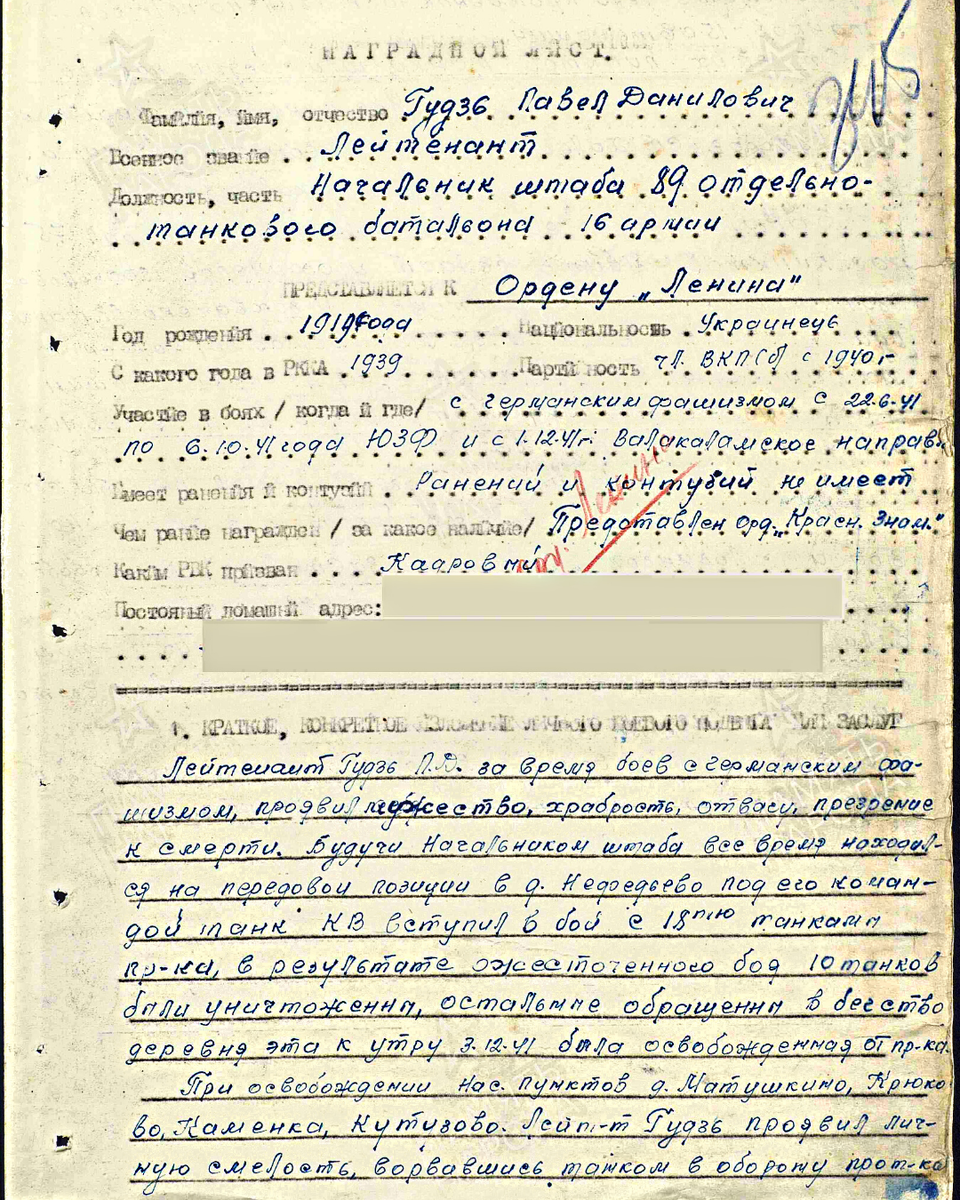 НАГРАДНОЙ ЛИСТ.
Фамилия, имя, отчество Гудзь Павел Данилович
Военное звание . . Лейтенант
Должность, часть Начальник штаба 89 отдельно-
танкового баталвона 16 армии
ПРЕДСТАВЛЯЕТСЯ К Ордену „Ленина"
Год рождения . . 1919 года Национальность . Украинець
С какого года в РККА . 1939 Партийность чл. ВКП(б) с 1940 г
Участие в боях / когда и где/ с германским фашизмом с 22.6.41
по 6.10.41 года ЮЗФ и с 1.12.41 г. Валакаламское направ
Имеет ранения и контузии . Ранений и контузий не имеет
Чем ранее награжден / за какое наличие/ Представлен орд. „Красн. Знам."
Каким РВК призван . . . . Кадровый
Ленина
Постояный домашний адрес:
1. КРАТКОЕ, КОНКРЕТНОЕ ИЗЛОЖЕНИЕ ЛИЧНОГО БОЕВОГО ПОДВИГА ИЛИ ЗАСЛУГ
Лейтенант Гудзь П.Д. за время боев с германским фа-
шизмом, проявил мужество, храбрость, отвагу, презрение
к смерти. Будучи Начальником штаба все время находил-
ся на передовой позиции в д. Нефедьево под его коман-
дой танк КВ вступил в бой с 18тью танками
пр-ка, в результате ожесточенного боя 10 танков
были уничтоженны, остальные обращенны в бегство
деревня эта к утру 3.12.41 была освобожденная от пр-ка.
При освобождении нас. пунктов д. Матушкино, Крюко
во, Каменка, Кутузово. Лейт-т Гудзь проявил лич-
ную смелость, ворвавшись танком в оборону прот-ка